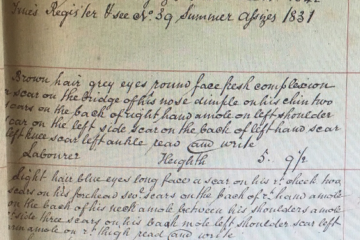 Register & see No. 39 Summer Assizes 1831
Brown hair grey eyes round face fresh complexion
a scar on the bridge of his nose dimple on his chin two
scars on the back of right hand a mole on left shoulder
scar on the left side scar on the back of left hand scar
left knee scar left ankle read and write
Labourer Heighth 5. 9½
Light hair blue eyes long face a scar on his rt. cheek two
scars on his forehead sev. scars on the back of rt. hand a mole
on the back of his neck a mole between his shoulders a mole
side three scars on his back mole left shoulder scar left
arm a mole on rt. thigh read and write